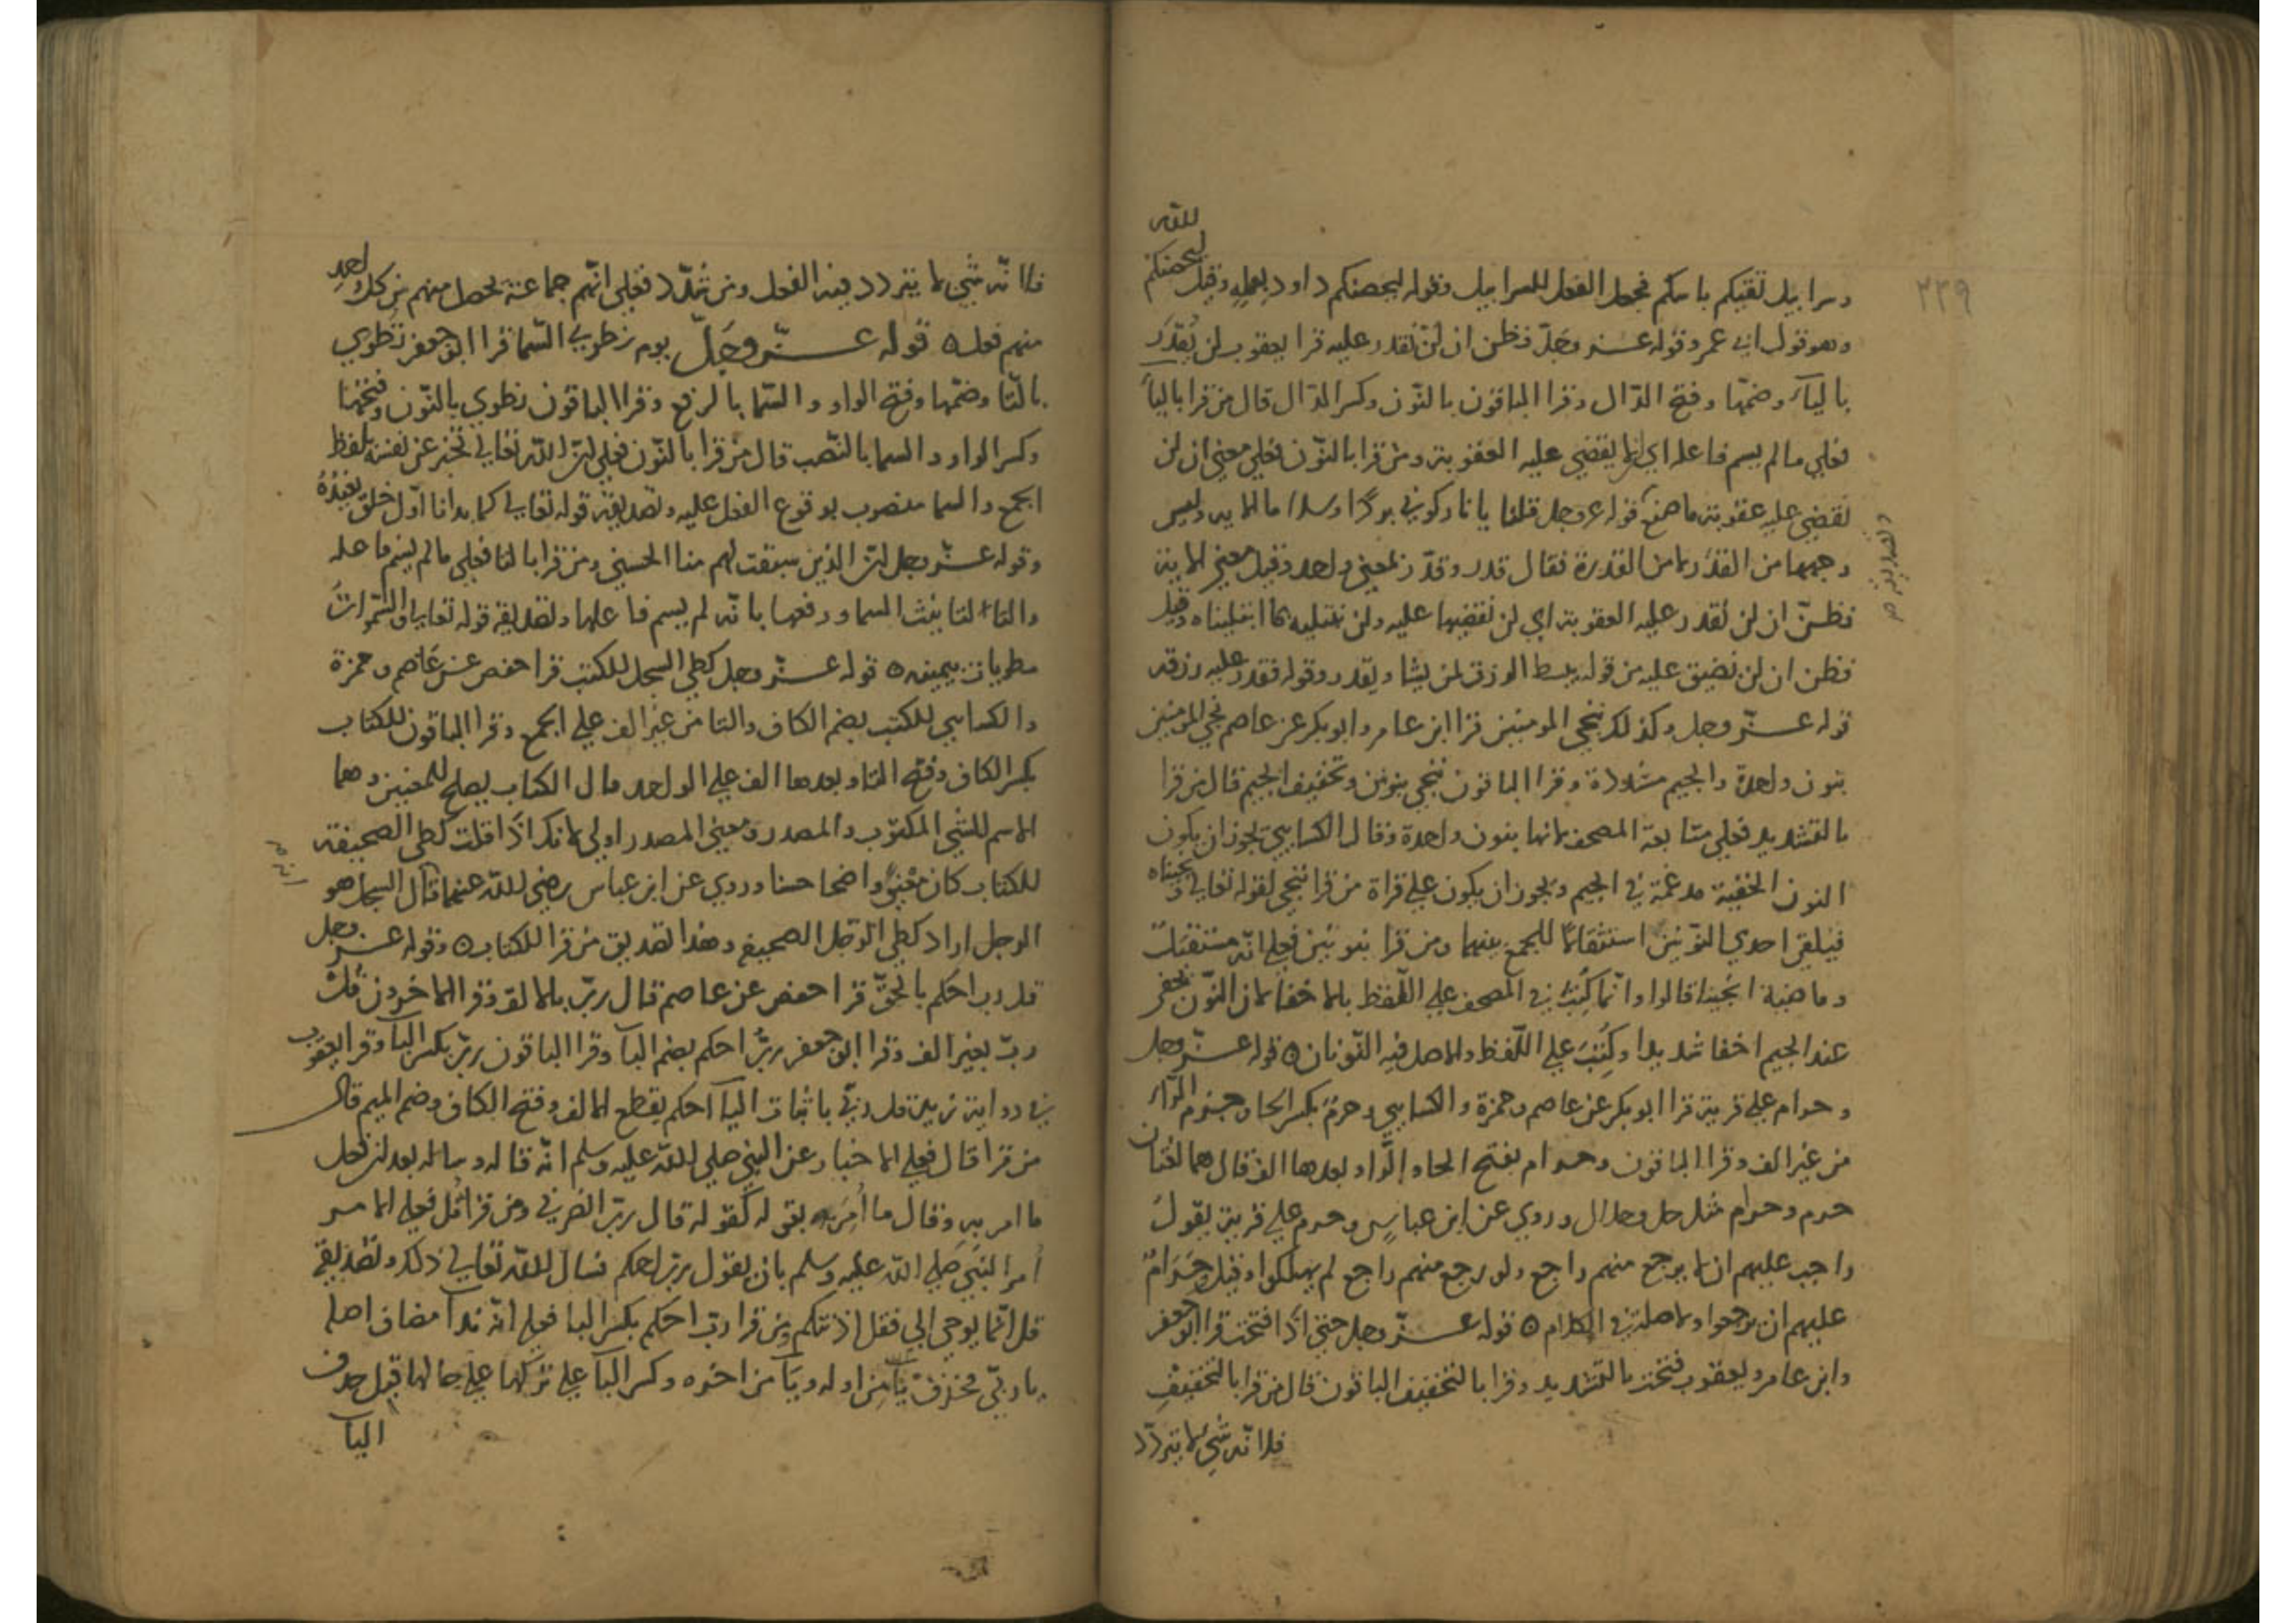 ٢٢٩
الله
ليحصنكم
وسرابيل تقيكم باسكم فجعل الفعل للسرابيل وقوله ليحصنكم داود بعمله وقيل
وهو قول ابي عمر وقوله عز وجل فظن ان لن نقدر عليه قرا يعقوب لن يُقدَر
باليآء وضمّها وفتح الدّال وقرا الباقون بالنّون وكسر الدّال قال من قرا باليآء
فعلي ما لم يسم فاعله اي انما يقضي عليه العقوبة ومن قرا بالنّون فعلي معني ان لن
نقضي عليه عقوبة ما صنع قوله عز وجل قلنا يا نار كوني بردًا وسلاما الاية وليس
وجهها من القدر لا من القدرة فقال قدر وقدّر بمعني واحد وقيل معني الاية
والتقدير
فظنّ ان لن نقدر عليه العقوبة اي لن نقضيها عليه ولن نبتليه بما ابتليناه وقيل
فظن ان لن نضيق عليه من قوله يبسط الرزق لمن يشا ويقدر وقوله فقدر عليه رزقه
قوله عزّ وجل وكذلك ننجي المومنين قرا ابن عامر وابو بكر عن عاصم نجي المومنين
بنون واحدة والجيم مشددة وقرا الباقون ننجي بنونين وتخفيف الجيم قال من قرا
بالتشديد فعلي متابعة المصحف لانها بنون واحدة وقال الكسايي يجوز ان يكون
النون الخفية مدغمة في الجيم ويجوز ان يكون علي قراة من قرا ننجي لقوله تعالي ونجيناه
فيلقي احدي النّونين استثقالًا للجمع بينهما ومن قرا بنونين فعلي انّه مستقبل
وماضية انجينا قالوا وانّما كُتبَت في المصحف علي اللّفظ بالاخفا لان النّون تخفي
عند الجيم اخفا شديدا وكُتبَت علي اللّفظ والاصل فيه النّونان ه قوله عزّ وجل
وحرام علي قرية قرا ابو بكر عن عاصم وحمزة والكسايي وحِرمٌ بكسر الحا وجزم الرّاء
من غير الف وقرا الباقون وحرام بفتح الحا والرّا وبعدها الف قال هما لغتان
حرم وحرام مثل حل وحلال وروي عن ابن عباس وحرم علي قرية يقول
واجب عليهم ان لا يرجع منهم راجع ولو رجع منهم راجع لم يهلكوا وقيل حَرَامٌ
عليهم ان يرجعوا ولا صلة في الكلام ه قوله عزّ وجل حتي اذا فتحت قرا ابو جعفر
وابن عامر ويعقوب فتحت بالتشديد وقرا بالتخفيف الباقون قال من قرا بالتخفيف
فلانّه شي لا يتردّد
فلانّه شي لا يتردد فيه الفعل ومن شدّد فعلي انّهم جماعة يحصل منهم من كل واحد
منهم فعل ه قوله عزّ وجَلّ يوم نطوي السّما قرا ابو جعفر تُطوي
بالتّا وضمّها وفتح الواو والسّما بالرفع وقرا الباقون نطوي بالنّون وفتحها
وكسر الواو والسما بالنّصب قال من قرا بالنّون فعلي ان الله تعالي يخبر عن نفسه بلفظ
الجمع والسما منصوب بوقوع الفعل عليه وتصديقه قوله تعالي كما بدانا اوّل خلق نعيدُهُ
وقوله عزّ وجل ان الذين سبقت لهم منا الحسني ومن قرا بالتا فعلي ما لم يسم فاعله
والتا لتانيث السما ورفعها بانّه لم يسم فاعلها وتصديقه قوله تعالي والسّموات
مطويات بيمينه ه قوله عزّ وجل كطي السجل للكتب قرا حفص عن عَاصم وحمزة
والكسايي للكتب بضم الكاف والتا من غير الف علي الجمع وقرا الباقون للكتاب
بكسر الكاف وفتح التا وبعدها الف علي الواحد قال الكتاب يصلح للمعنيين وهما
الاسم للشي المكتوب والمصدر ومعني المصدر اولي لانك اذا قلت كطي الصحيفة
للكتاب كان معنيً واضحا حسنا وروي عن ابن عباس رضي الله عنهما قال السجل هو
الرجل اراد كطي الرّجل الصحيفة وهذا تصديق من قرا للكتاب ه وقوله عزّ وجل
قل رب احكم بالحقّ قرا حفص عن عاصم قال ربّ بالالف وقرا الاخرون قُل
ربّ بغير الف وقرا ابو جعفر ربُّ احكم بضم البآ وقرا الباقون ربّ بكسر البآ وقرا يعقوب
في رواية زيد قل ربّي باثبات اليآ احكم بقطع الالف وفتح الكاف وضم الميم قال
من قرا قال فعلي الاخبار عن النبي صلي الله عليه وسلم انّه قاله وساله بعد ان فعل
ما امر به وقال ما أُمِرَ به بقوله كقوله قال ربّ انصرني ومن قرا قُل فعلي الامر
أمر النّبي صلي الله عليه وسلم بان يقول ربّ احكم فسال الله تعالي ذلك وتصديقه
قل انّما يوحي الي فقل اذنتكم ومن قرا ربّ احكم بكسر البا فعلي انّه ندآ مضاف اصله
يا ربّي فحذف يآ من اوله ويآ من اخره وكسر البآ علي تركها علي حالها قبل حذف
اليآ